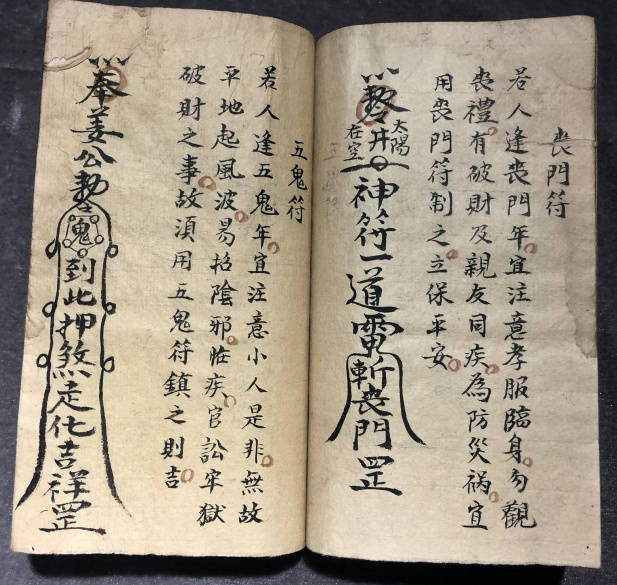 喪門符
若人逢喪門年宜注意孝服臨身勿觀
喪禮有破財及親友同疾為防災禍宜
用喪門符制之立保平安
太陽
在空
井
神符一道雷斬喪門罡
五鬼符
若人逢五鬼年宜注意小人是非無故
平地起風波易招陰邪怪疾官訟牢獄
破財之事故須用五鬼符鎮之則吉
奉姜公勅令鬼到此押煞走化吉祥罡